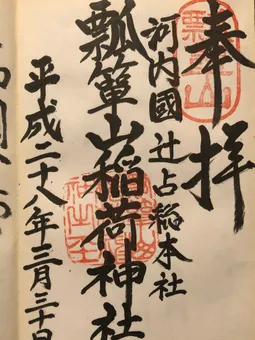 奉拝
河内國 辻占総本社
瓢箪山稲荷神社
平成二十八年三月三十日